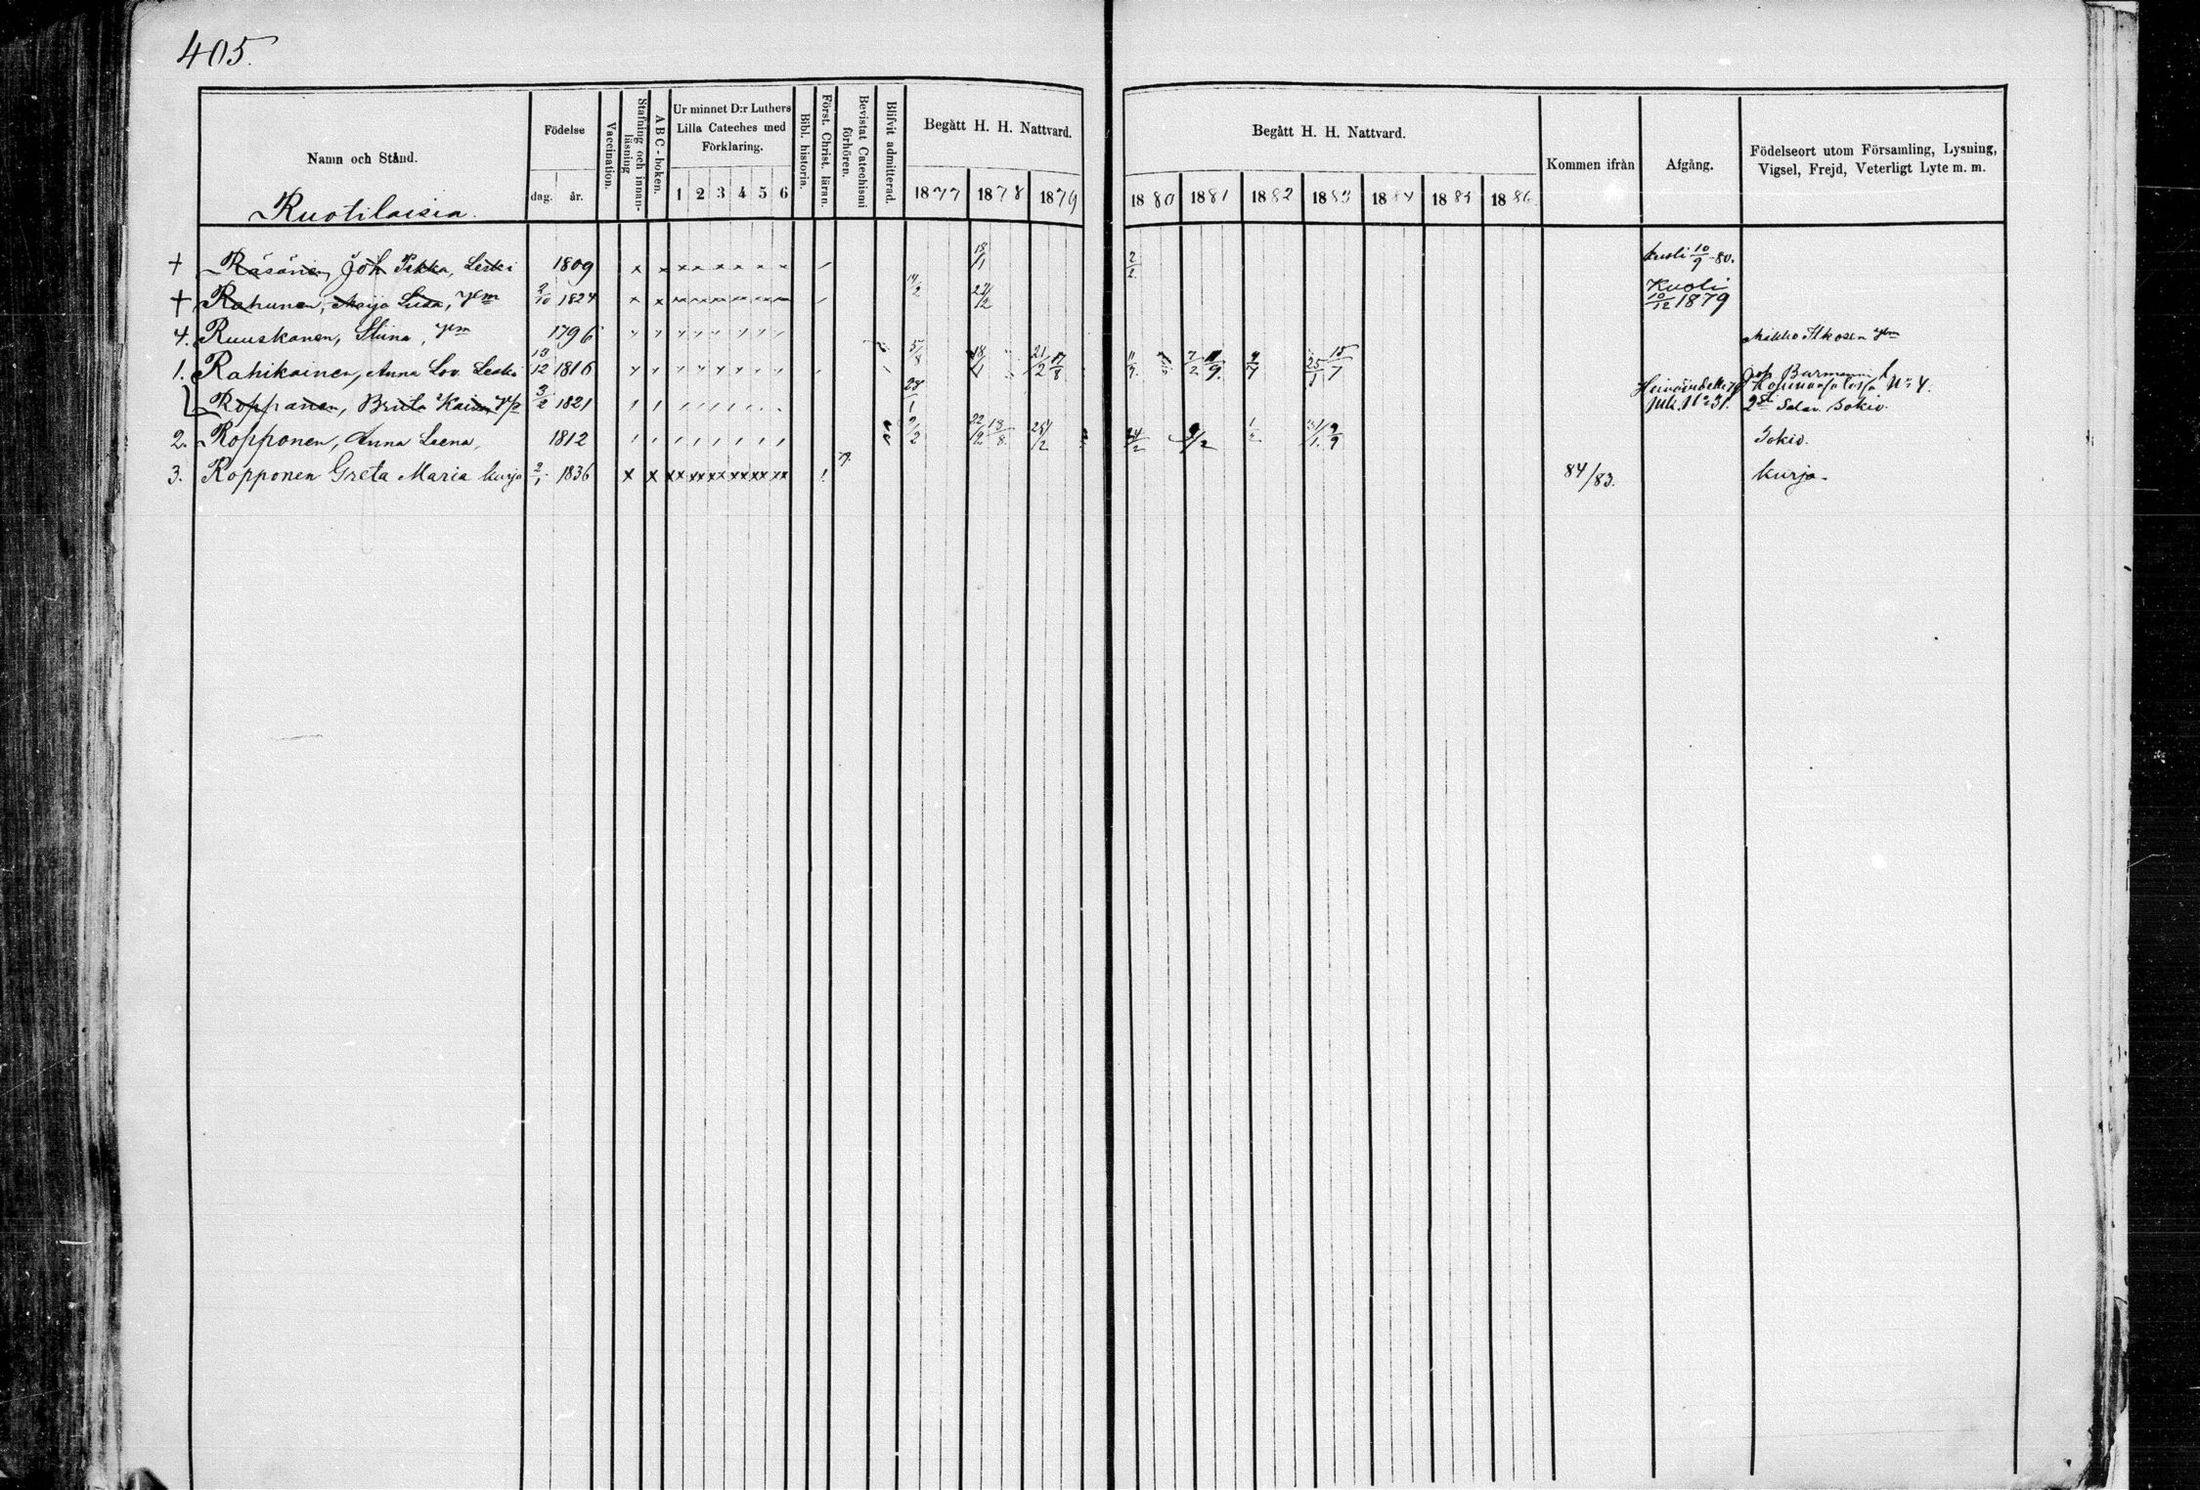 405.
Namn och Stånd.
Födelse
dag. år.
Vaccination.
Stafning och innanläsning
ABC-boken.
Ur minnet D:r Luthers Lilla Cateches med Förklaring.
1 2 3 4 5 6
Bibl. historia.
Först. Christ. läran.
Bevistat Catechismi förhören.
Blifvit admitterad.
Begått H. H. Nattvard.
1877 1878 1879
Begått H. H. Nattvard.
1880 1881 1882 1883 1884 1885 1886
Kommen ifrån
Afgång.
Födelseort utom Församling, Lysning, Vigsel, Frejd, Veterligt Lyte m. m.
Ruotilaisia.
+ Räsänen, Joh Pekka, Leski 1809 18/1 2/2 kuoli 10/9 -80.
+ Rahunen, Maija Liisa, ylm 2/10 1824 14/2 27/2 Kuoli 10/12 1879
4. Ruuskanen, Stina, ylm 1796 Mikko Itkosen ylm
1. Rahikainen, Anna Lov. Leski 13/12 1816 5/8 18/1 21/2 17/8 4/7 25/1 15/7
Roppanen, Briita Kaisa 3/2 1821 24/1 2st Salav. Sokio.
2. Ropponen, Anna Leena, 1812 9/2 22/2 18/8 25/2 24/2 9/2 1/2 9/9 Sokio.
3. Ropponen Greta Maria kurja 2/1 1836 84/83. kurja.